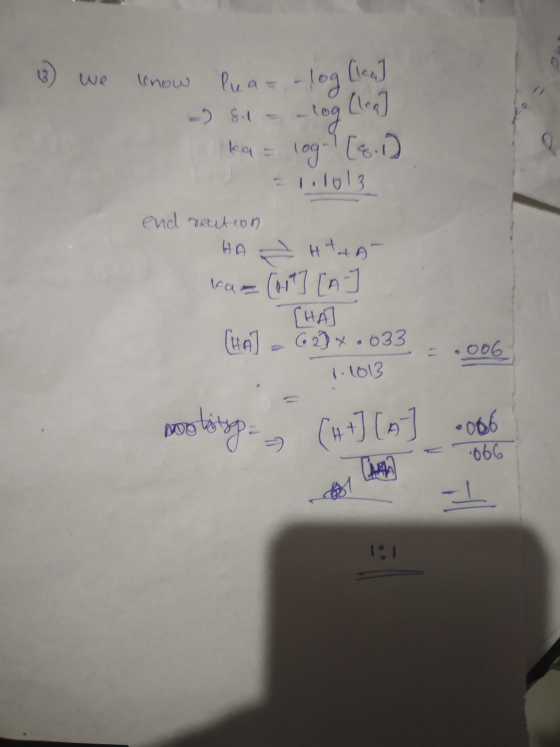 13) we know Pka = -log [ka]
=> 8.1 = -log [ka]
ka = log-1 [8.1)
= 1.1013
end reaction
HA ⇌ H+ + A-
ka = [H+] [A-]
[HA]
[HA] = (.2) x .033 = .006
1.1013
=
= => [H+] [A-] = .006
.066
-1
1:1